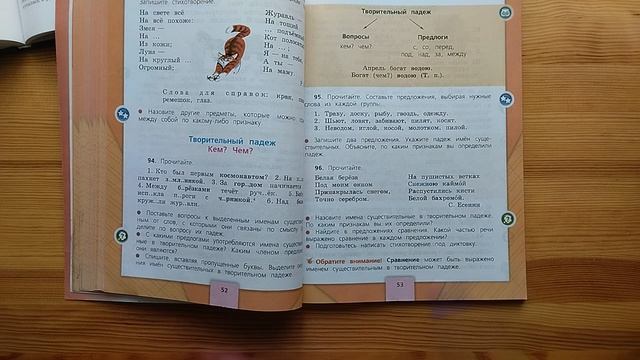 Запишите стихотворение.
На свете всё
На всё похоже:
Змея —
На ...
Из кожи;
Луна —
На круглый ...
Огромный;
Журавль
На тощий
... подъёмный
Кот полосатый
На ... ;
Я — на тебя,
А ты —
На маму
Слова для справок: кран,
ремешок, глаз.
Назовите другие предметы, которые можно
между собой по какому-либо признаку
Творительный падеж
Кем? Чем?
94. Прочитайте.
1. Кто был первым космонавтом? 2. На
пахнет з..мл..никой. 3. За гор..дом начинается
4. Между б..рёзками течёт руч..ёк. 5.
исп..кла п..роги с ч..рникой. 6. Над
круж..ли жур..вли.
Поставьте вопросы к выделенным именам существи-
тельным от слов, с которыми они связаны по смыслу
делите по вопросу их падеж.
С какими предлогами употребляются имена существи-
ные в творительном падеже? Каким членом предло-
они являются?
Спишите, вставляя пропущенные буквы. Выделите
ния имён существительных в творительном падеже.
52
Творительный падеж
Вопросы
Предлоги
кем? чем?
с, со, перед,
под, над, за, между
Апрель богат водою.
Богат (чем?) водою (Т. п.).
95. Прочитайте. Составьте предложения, выбирая нужные
слова из каждой группы.
1. Траву, доску, рыбу, гвоздь, одежду.
2. Шьют, ловят, забивают, пилят, косят.
3. Неводом, иглой, косой, молотком, пилой.
Запишите два предложения. Укажите падеж имён суще-
ствительных. Объясните, по каким признакам вы определили
падеж.
96. Прочитайте.
Белая берёза
Под моим окном
Принакрылась снегом,
Точно серебром.
На пушистых ветках
Снежною каймой
Распустились кисти
Белой бахромой.
С. Есенин
Назовите имена существительные в творительном падеже.
По каким признакам вы их определили?
Найдите в предложениях сравнения. Какой частью речи
выражено сравнение в каждом предложении?
Подготовьтесь написать стихотворение под диктовку.
Обратите внимание! Сравнение может быть выражено
именем существительным в творительном падеже.
53